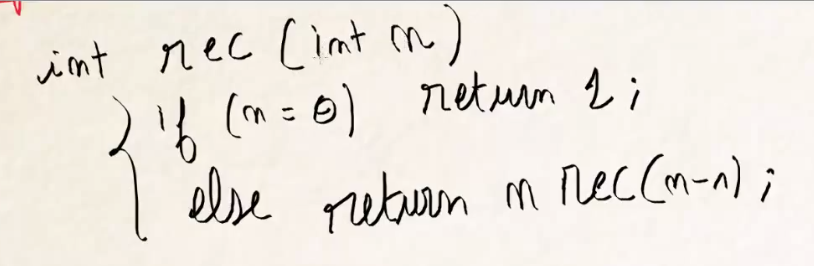 int rec (int n)
{ if (n = 0) return 1;
else return n rec(n-1);